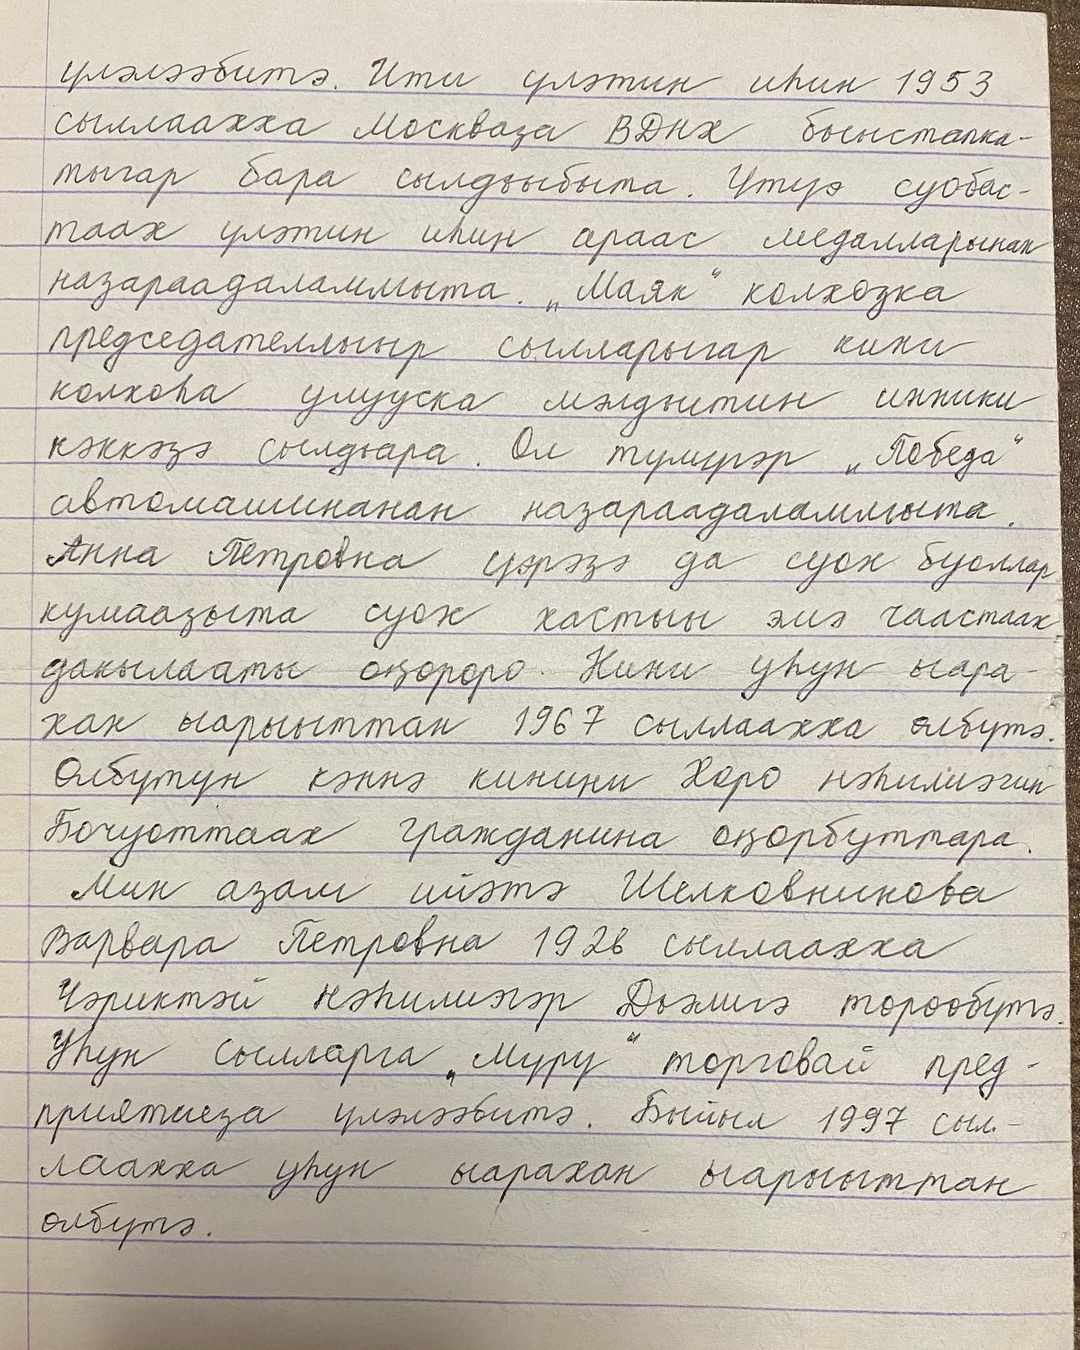 үлэлээбитэ. Ити үлэтин иһин 1953
сыллаахха Москваҕа ВДНХ быыстапка-
тыгар бара сылдьыбыта. Үтүө суобас-
таах үлэтин иһин араас медалларынан
наҕараадаламмыта. „Маяк“ колхозка
председателлыыр сылларыгар кини
колхоһа улууска мэлдьитин инники
кэккэҕэ сылдьара. Ол түмүгэр „Победа“
автомашинанан наҕараадаламмыта.
Анна Петровна үөрэҕэ да суох буоллар
кумааҕыта суох хастыы эмэ чаастаах
дакылааты оҥороро. Кини уһун ыара-
хан ыарыыттан 1967 сыллаахха өлбүтэ.
Өлбүтүн кэннэ кинини Хоро нэһилиэгин
Бочуоттаах гражданина оҥорбуттара.
Мин аҕам ийэтэ Шелковникова
Варвара Петровна 1926 сыллаахха
Чэриктэй нэһилиэгэр Дьэлигэ төрөөбүтэ.
Уһун сылларга „Муру“ торговай пред-
приятиеҕа үлэлээбитэ. Быйыл 1997 сыл-
лаахха уһун ыарахан ыарыыттан
өлбүтэ.